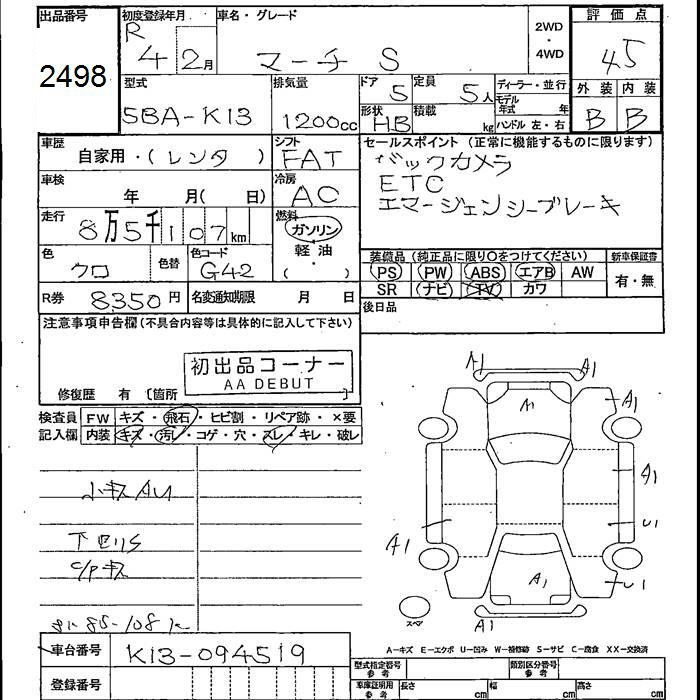 出品番号 初度登録年月 車名・グレード 2WD・4WD 評価点
2498 R 4 2月 マーチ S 45
型式 排気量 ドア 定員 ディーラー・並行 外装 内装
5BA-K13 1200cc 5 5人 モデル年式 年
形状 積載 HB kg ハンドル 左・右 B B
車歴 自家用・(レンタ ) シフト FAT
セールスポイント (正常に機能するものに限ります)
バックカメラ
ETC
エマージェンシーブレーキ
車検 年 月( 日) 冷房 AC
走行 8万5千107km 燃料 ガソリン・軽油・( )
色 クロ 色替 色コード G42
装備品 (純正品に限り○をつけてください) 新車保証書
PS PW ABS エアB AW 有・無
SR ナビ TV カワ
R券 8350円 名変通知期限 月 日
後日品
注意事項申告欄(不具合内容等は具体的に記入して下さい)
初出品コーナー
AA DEBUT
修復歴 有 〔箇所 〕
検査員記入欄 FW キズ・飛石・ヒビ割・リペア跡・×要
内装 キズ・汚レ・コゲ・穴・スレ・キレ・破レ
小キズAU
A1
A1
A1
A1
A1
U1
A1
U1
A1
A1
スペア
A-キズ E-エクボ U-凹み W-補修跡 S-サビ C-腐食 XX-交換済
車台番号 K13-094519
型式指定番号 参考 類別区分番号 参考
登録番号
車庫証明用 参考 長さ cm 幅 cm 高さ cm